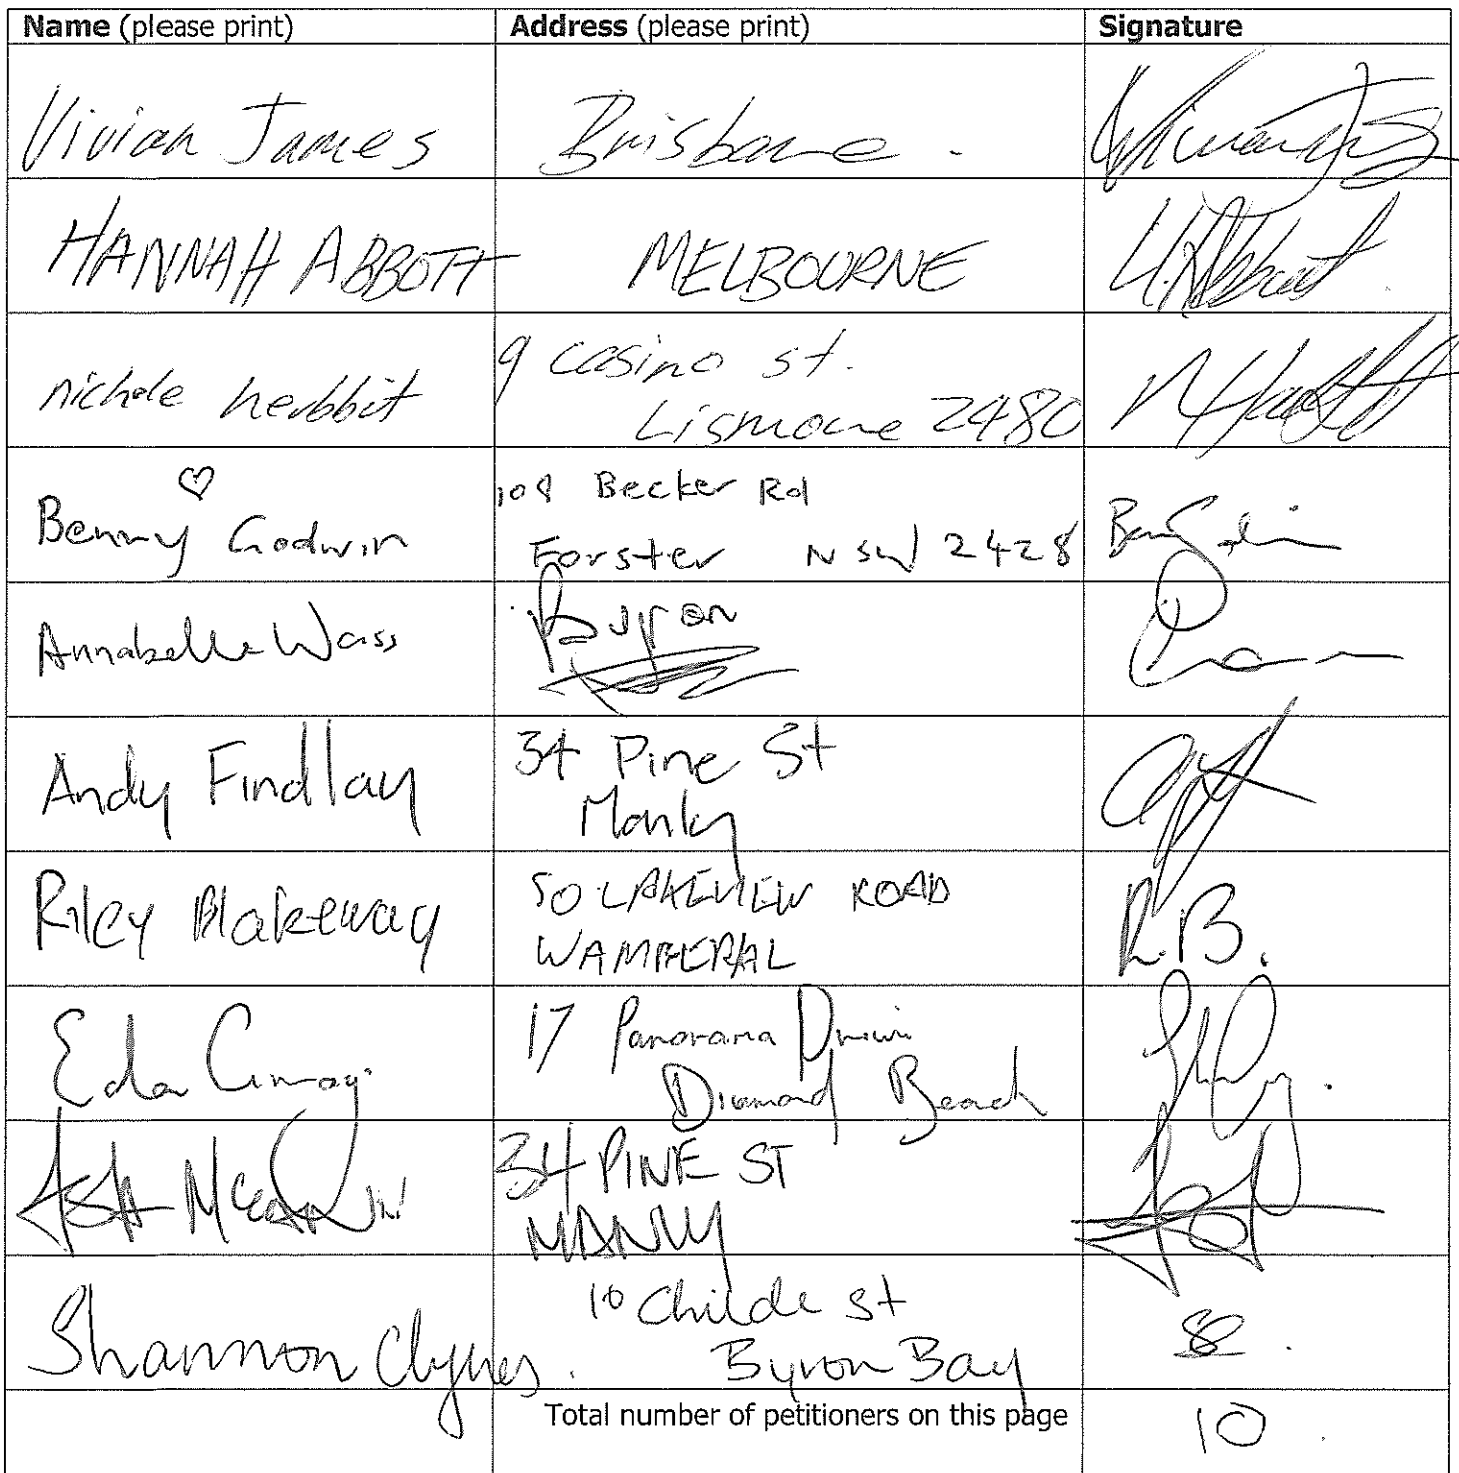 Name (please print) Address (please print) Signature
Vivian James Brisbane.
HANNAH ABBOTT MELBOURNE H.Abbott
nichole herbbit 9 casino st.
Lismore 2480
Benny Godwin 108 Becker Rd
Forster NSW 2428
Annabelle Wass Byron
Andy Findlay 34 Pine St
Manly
Riley Blakeway 50 LAKEVIEW ROAD
WAMBERAL R.B.
Eda 17 Panorama Drive
Diamond Beach
34 PINE ST
MANLY
Shannon Clynes. 10 Childe St
Byron Bay
Total number of petitioners on this page 10